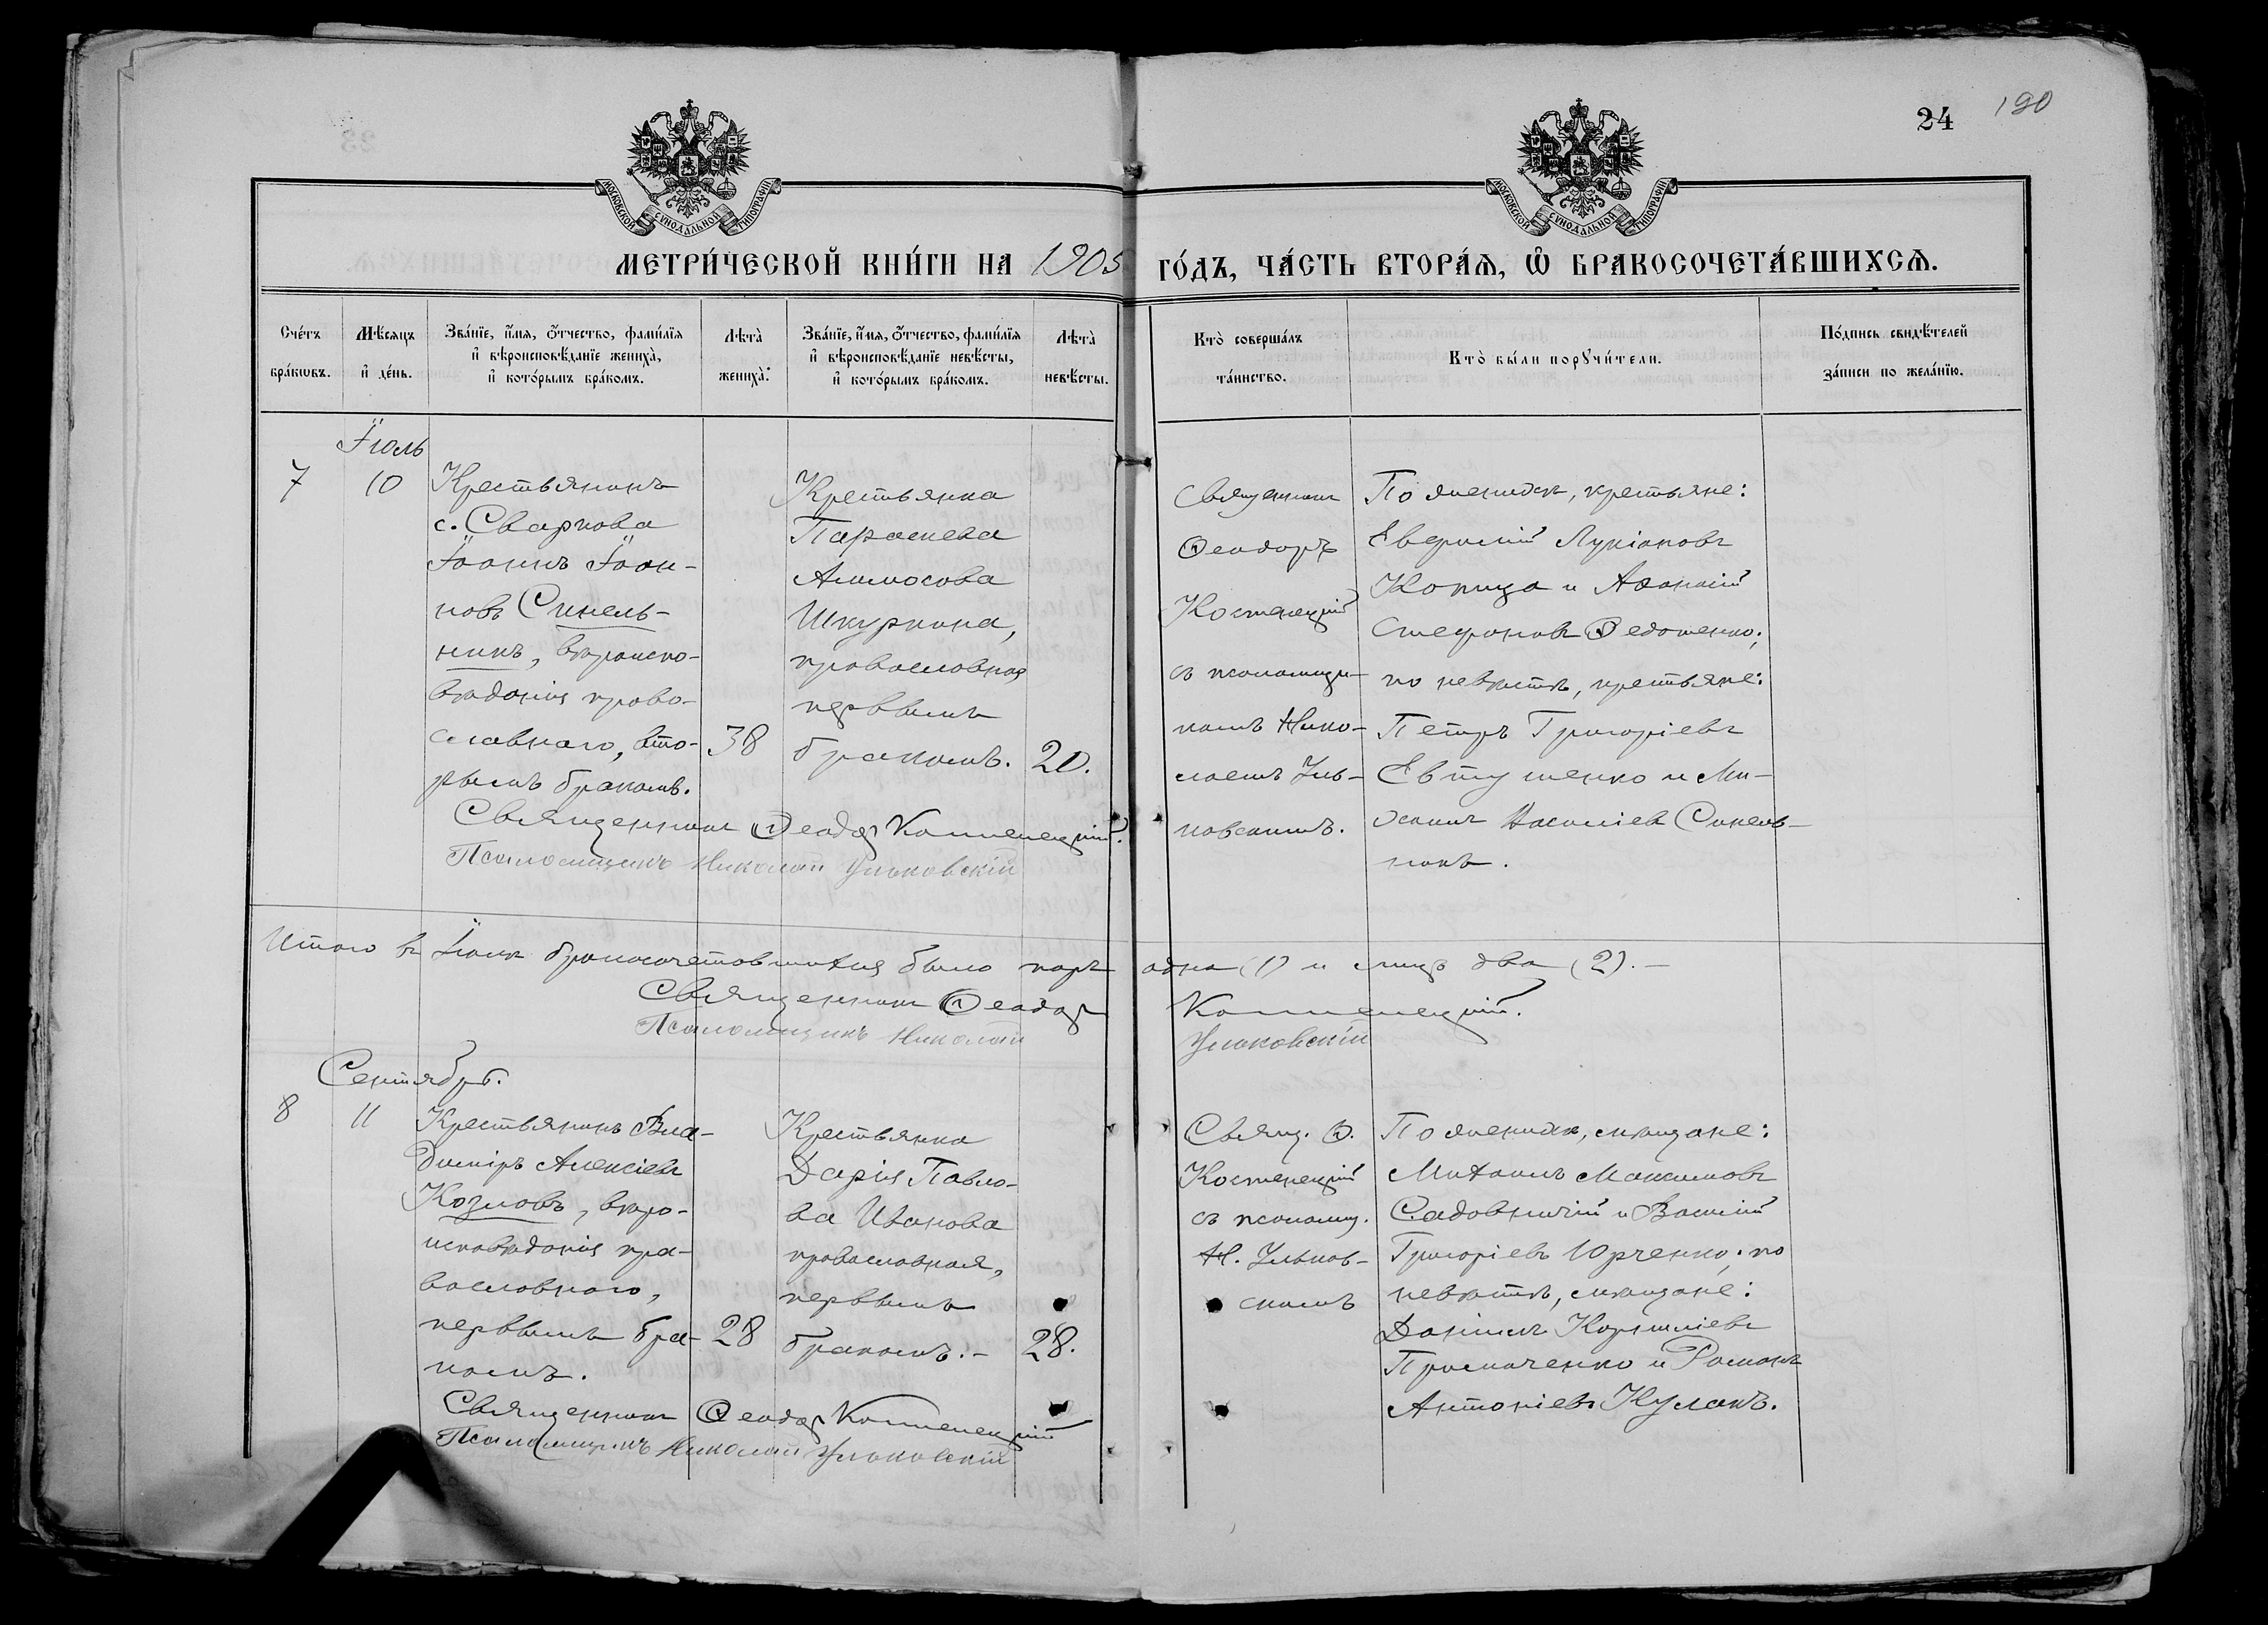 24 190
МОСКОВСКОЙ СѴНОДАЛЬНОЙ ТИПОГРАФІИ
МОСКОВСКОЙ СѴНОДАЛЬНОЙ ТИПОГРАФІИ
МЕТРИ́ЧЕСКОЙ КНИ́ГИ НА 1905 ГО́ДЪ, ЧА́СТЬ ВТОРА́Ѧ, Ѡ БРАКОСОЧЕТА́ВШИХСѦ.
Сче́тъ
бра́кѡвъ.
Мѣ́сѧцъ
и҆ де́нь.
Зва́нїе, и҆́мѧ, ѻ҆́тчество, фами́лїѧ
и҆ вѣроисповѣ́данїе жениха̀,
и҆ кото́рымъ бра́комъ.
Лѣ́та̀
жениха̀.
Зва́нїе, и҆́мѧ, ѻ҆́тчество, фами́лїѧ
и҆ вѣроисповѣ́данїе невѣ́сты,
и҆ кото́рымъ бра́комъ.
Лѣ́та̀
невѣ́сты.
Кто̀ соверша́лъ
та́инство.
Кто̀ бы́ли порꙋчи́тели.
По́дпись свидѣ́телей
за́писи по жела́нїю.
Іюль
7
10
Крестьянинъ
с. Сваркова
Іоаннъ Іоан-
новъ Синель-
никъ, вѣроиспо-
вѣданія право-
славнаго, вто-
рымъ бракомъ.
38
Крестьянка
Параскева
Аммосова
Шкуркина,
православная
первымъ
бракомъ.
20.
Священникъ
Ѳеодоръ
Костенецкій
съ псаломщи-
комъ Нико-
лаемъ Уль-
новскимъ.
По женихѣ, крестьяне:
Евфимій Лукіановъ
Копица и Аѳанасій
Стефановъ Ѳедотенко;
по невѣстѣ, крестьяне:
Петръ Григоріевъ
Евтушенко и Ми-
хаилъ Василіевъ Синель-
никъ.
Священникъ Ѳеодоръ Костенецкій.
Псаломщикъ Николай Ульновскій
Итого въ Іюлѣ бракосочетавшихся было паръ одна (1) и лицъ два (2).—
Священникъ Ѳеодоръ Костенецкій.
Псаломщикъ Николай Ульновскій
Сентябрь.
8
11
Крестьянинъ Вла-
диміръ Алексіевъ
Козловъ, вѣро-
исповѣданія пра-
вославнаго,
первымъ бра-
комъ.
28
Крестьянка
Дарія Павло-
ва Иванова
православная,
первымъ
бракомъ.—
28.
Свящ. Ѳ.
Костенецкій
съ псаломщ.
Н. Ульнов-
скимъ
По женихѣ, мѣщане:
Михаилъ Максимовъ
Садовничій и Василій
Григоріевъ Юрченко; по
невѣстѣ, мѣщане:
Даніилъ Корниліевъ
Примаченко и Романъ
Антоніевъ Кулакъ.
Священникъ Ѳеодоръ Костенецкій
Псаломщикъ Николай Ульновскій